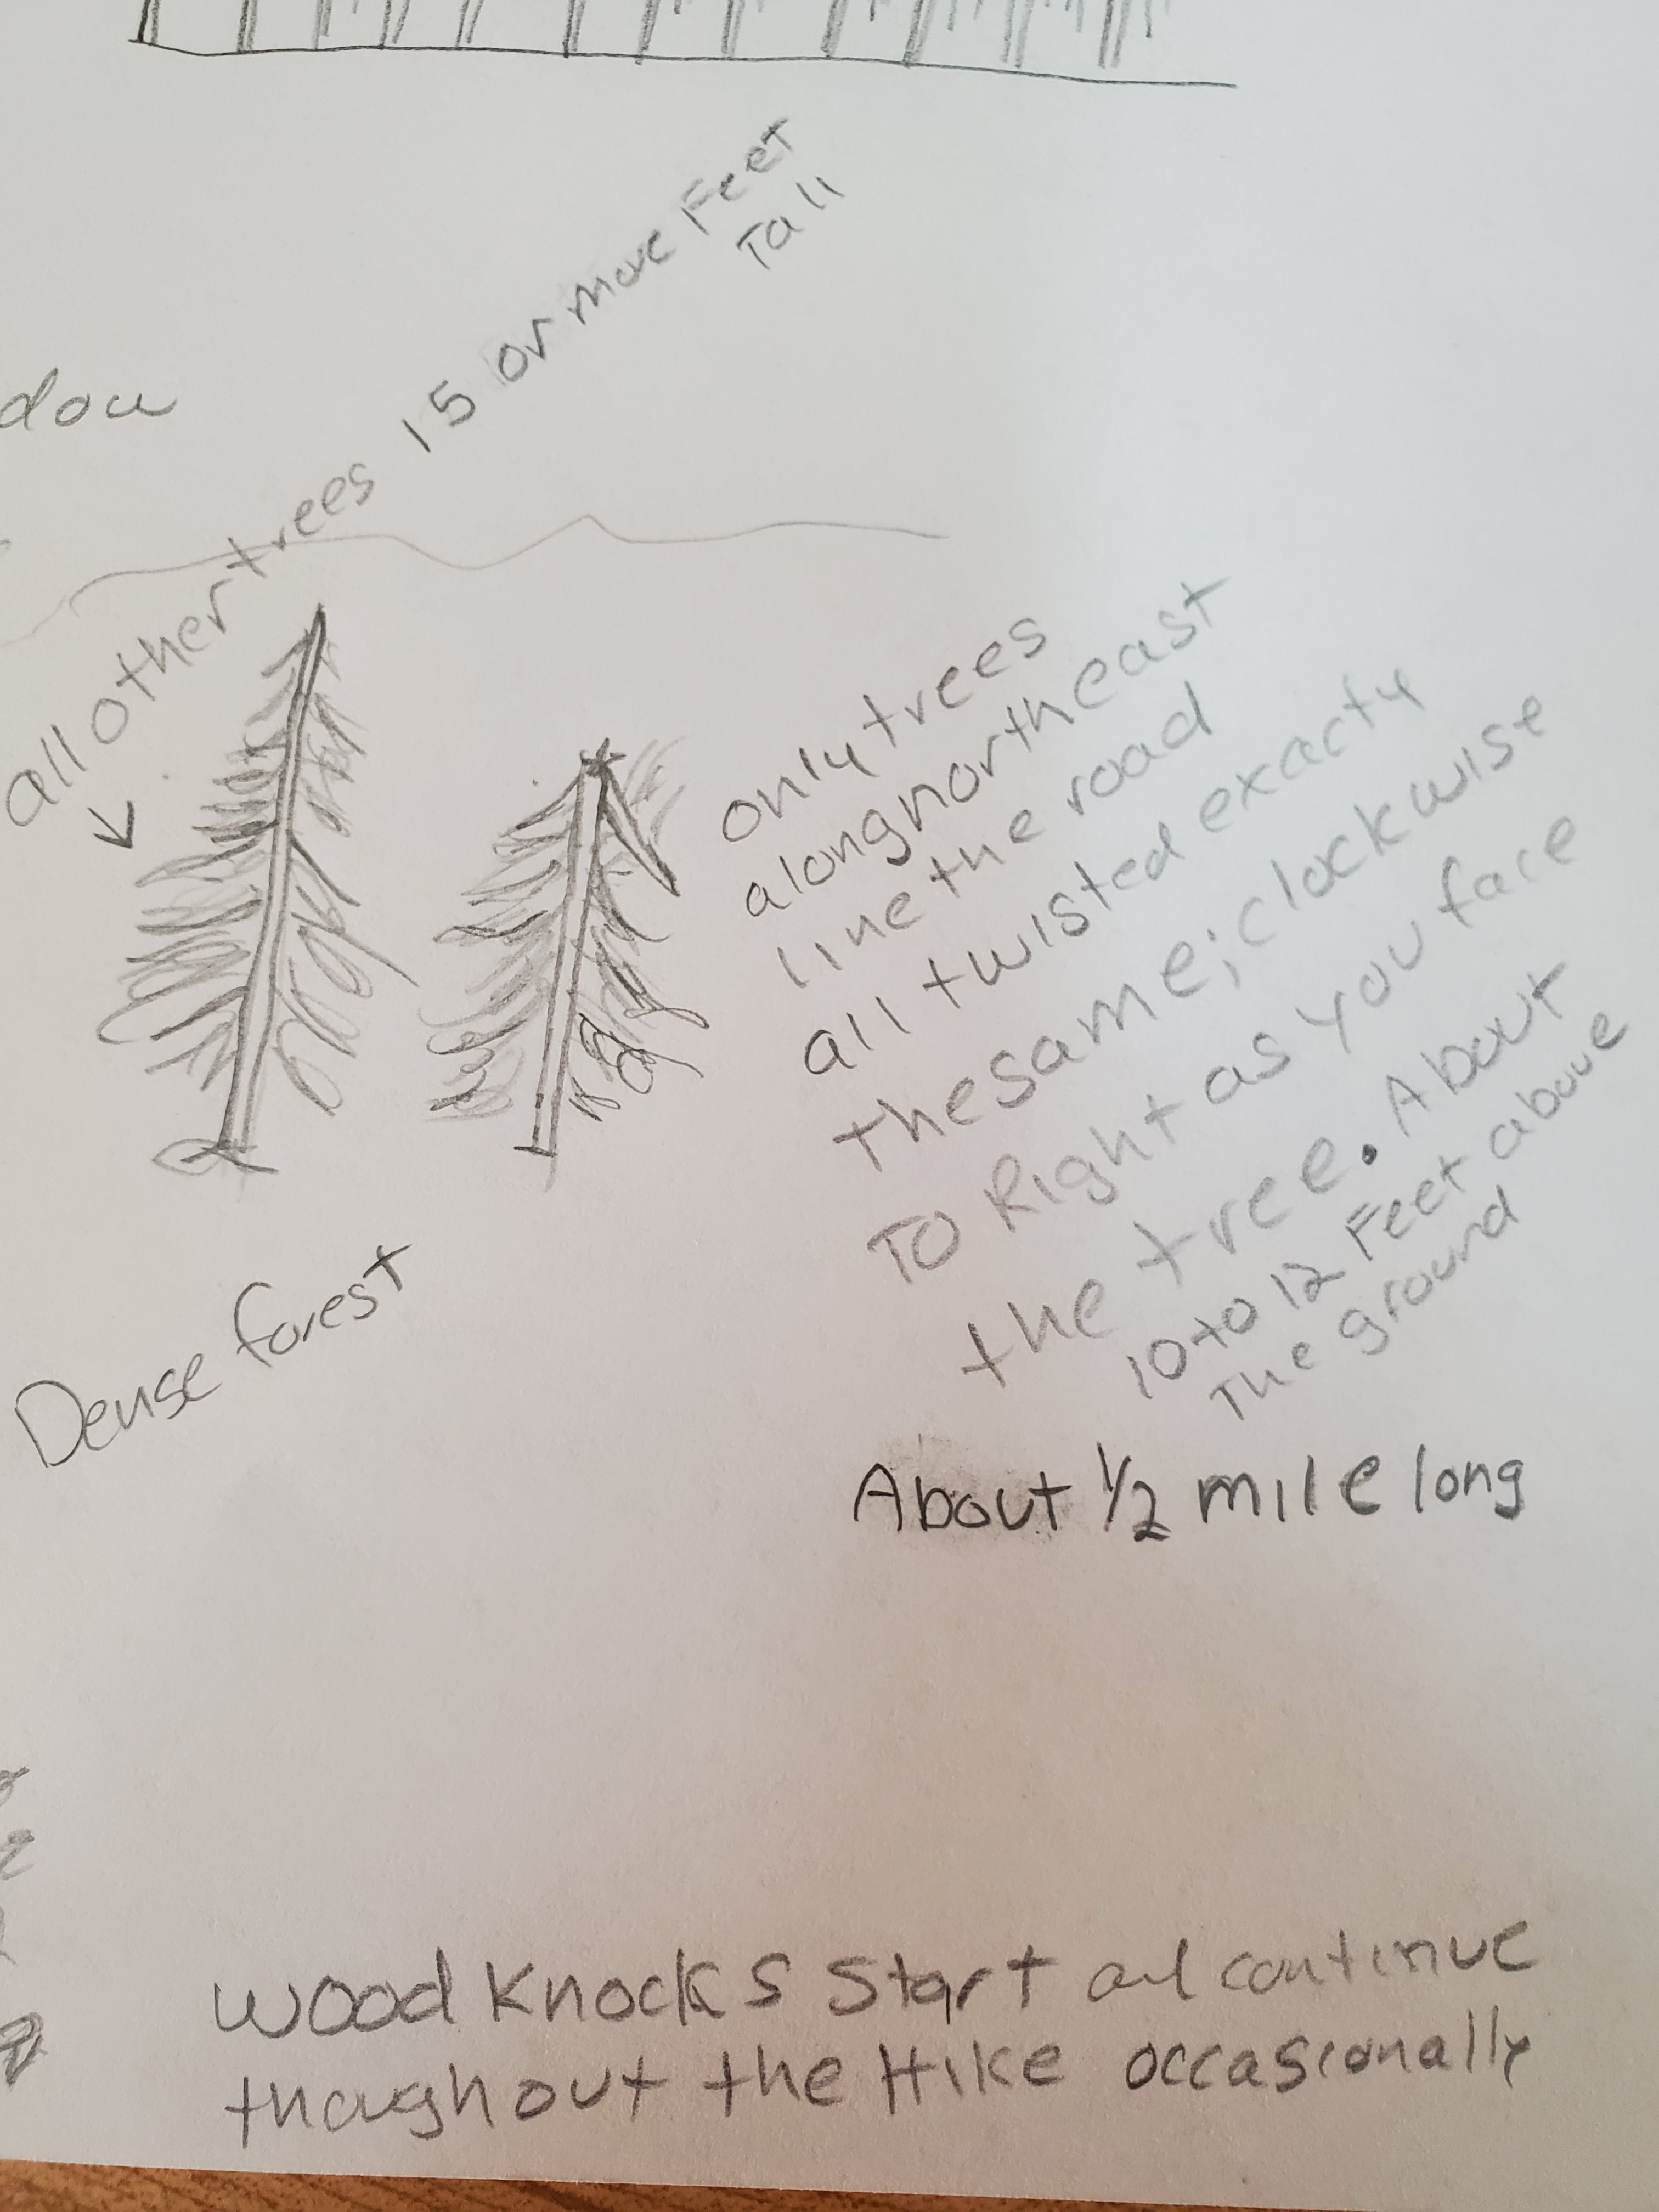 all other trees 15 or more Feet
Tall
only trees
along northeast
line the road
all twisted exacty
the same; clockwise
TO Right as you face
the tree. About
10 to 12 Feet above
The ground
Dense forest
About 1/2 mile long
wood Knocks Start and continue
thoughout the Hike occasionally